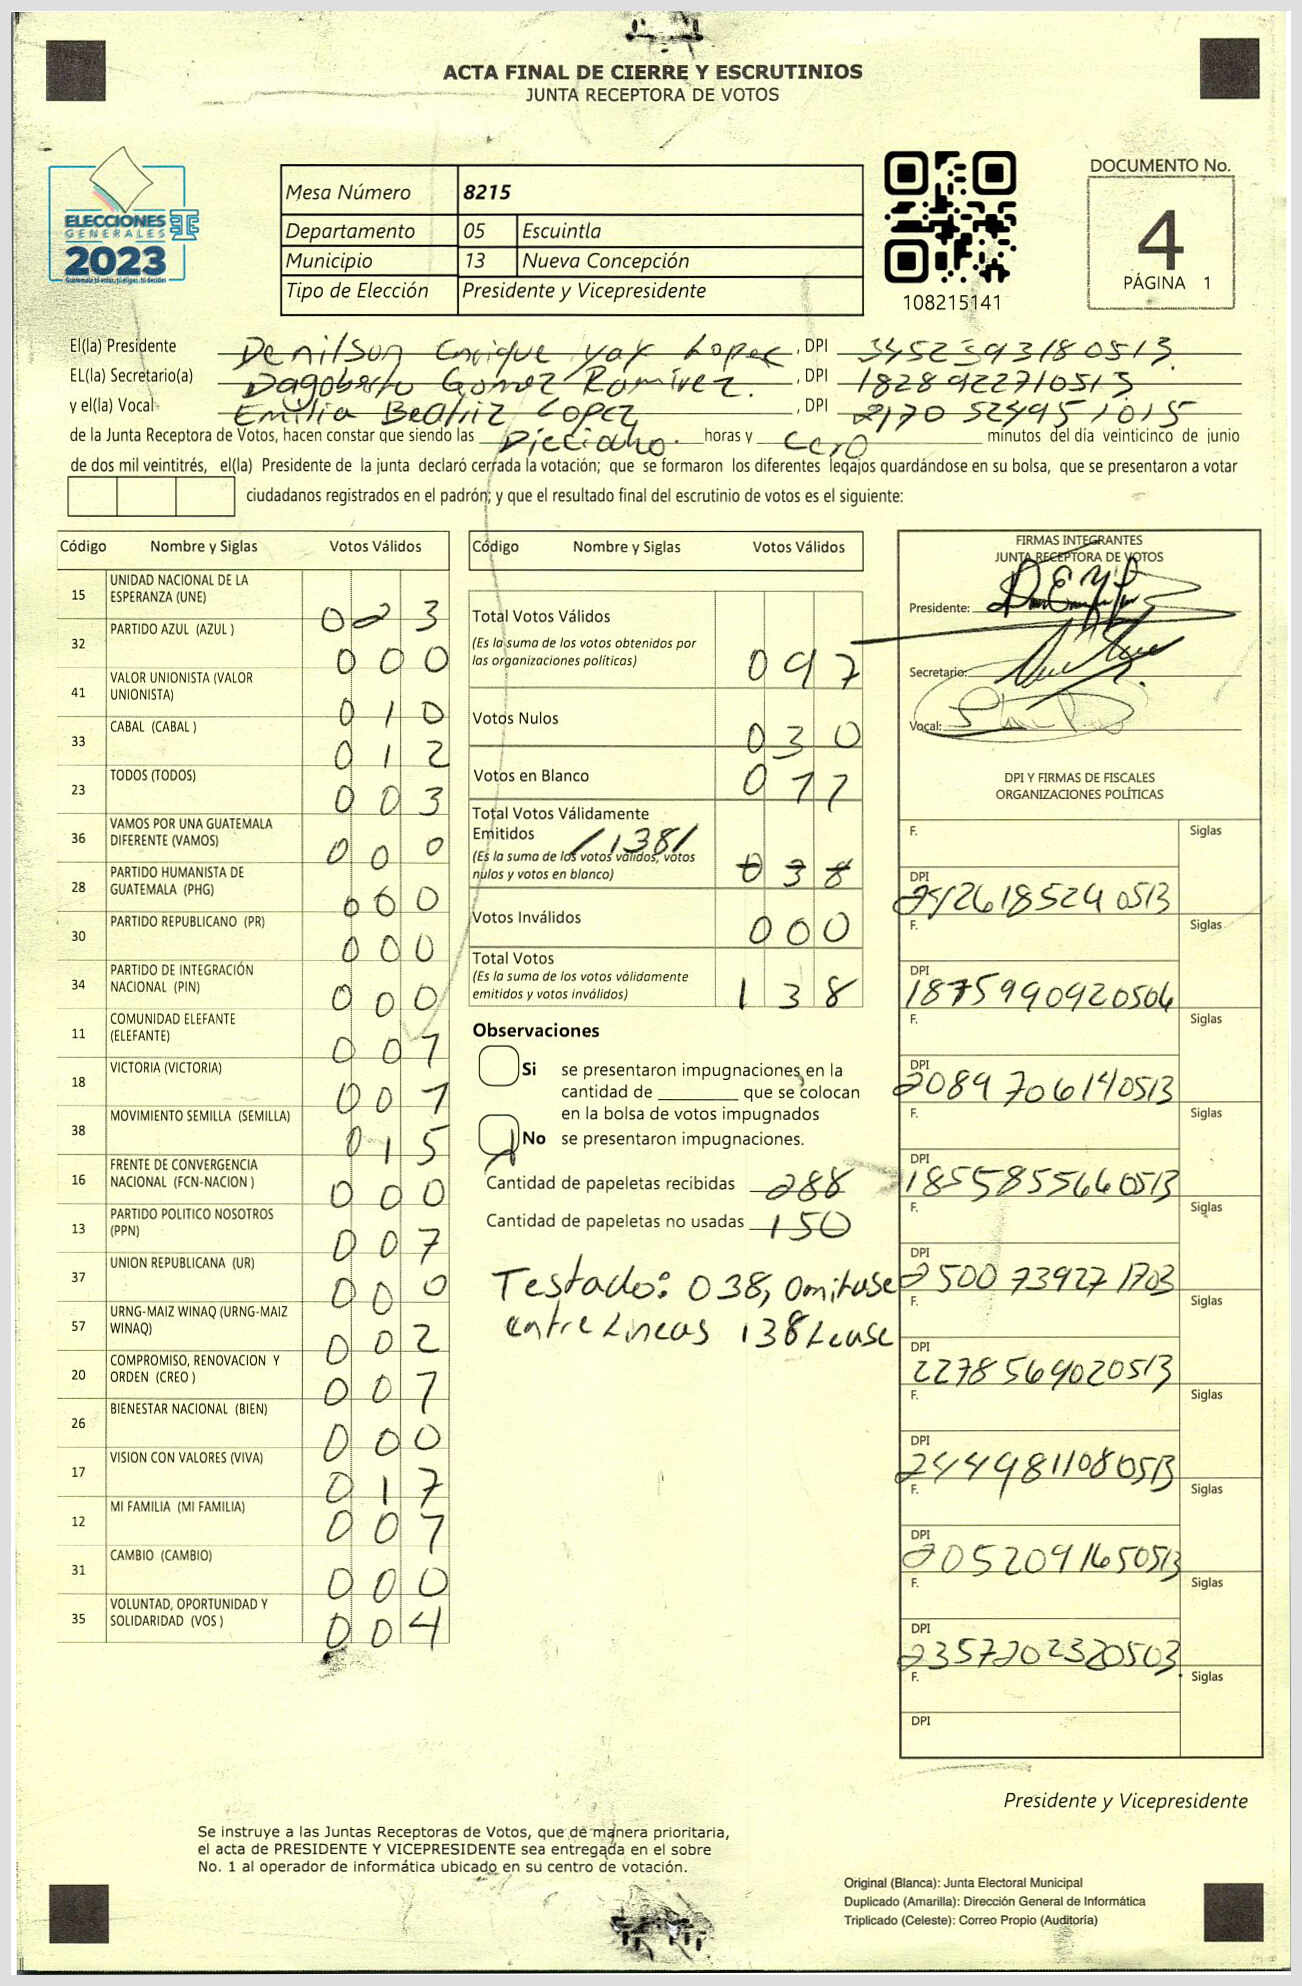 ACTA FINAL DE CIERRE Y ESCRUTINIOS
JUNTA RECEPTORA DE VOTOS
ELECCIONES
GENERALES
2023
Mesa Número 8215
Departamento 05 Escuintla
Municipio 13 Nueva Concepción
Tipo de Elección Presidente y Vicepresidente
108215141
DOCUMENTO No.
4
PÁGINA 1
El(la) Presidente Denilson Enrique yax Lopez, DPI 3452393180513
EL(la) Secretario(a) Dagoberto Gomez Ramirez. , DPI 1828922710513
y el(la) Vocal Emilia Beatriz Lopez , DPI 2170524951015
de la Junta Receptora de Votos, hacen constar que siendo las Dieciocho. horas y cero minutos del día veinticinco de junio
de dos mil veintitrés, el(la) Presidente de la junta declaró cerrada la votación; que se formaron los diferentes legajos guardándose en su bolsa, que se presentaron a votar
ciudadanos registrados en el padrón; y que el resultado final del escrutinio de votos es el siguiente:
Código Nombre y Siglas Votos Válidos
15 UNIDAD NACIONAL DE LA ESPERANZA (UNE) 023
32 PARTIDO AZUL (AZUL ) 000
41 VALOR UNIONISTA (VALOR UNIONISTA) 010
33 CABAL (CABAL ) 012
23 TODOS (TODOS) 003
36 VAMOS POR UNA GUATEMALA DIFERENTE (VAMOS) 000
28 PARTIDO HUMANISTA DE GUATEMALA (PHG) 000
30 PARTIDO REPUBLICANO (PR) 000
34 PARTIDO DE INTEGRACIÓN NACIONAL (PIN) 000
11 COMUNIDAD ELEFANTE (ELEFANTE) 001
18 VICTORIA (VICTORIA) 001
38 MOVIMIENTO SEMILLA (SEMILLA) 015
16 FRENTE DE CONVERGENCIA NACIONAL (FCN-NACION ) 000
13 PARTIDO POLITICO NOSOTROS (PPN) 007
37 UNION REPUBLICANA (UR) 000
57 URNG-MAIZ WINAQ (URNG-MAIZ WINAQ) 002
20 COMPROMISO, RENOVACION Y ORDEN (CREO ) 001
26 BIENESTAR NACIONAL (BIEN) 000
17 VISION CON VALORES (VIVA) 017
12 MI FAMILIA (MI FAMILIA) 001
31 CAMBIO (CAMBIO) 000
35 VOLUNTAD, OPORTUNIDAD Y SOLIDARIDAD (VOS ) 004
Código Nombre y Siglas Votos Válidos
Total Votos Válidos
(Es la suma de los votos obtenidos por
las organizaciones políticas) 097
Votos Nulos 030
Votos en Blanco 011
Total Votos Válidamente
Emitidos /138/
(Es la suma de los votos válidos, votos
nulos y votos en blanco) 038
Votos Inválidos 000
Total Votos
(Es la suma de los votos válidamente
emitidos y votos inválidos) 138
Observaciones
Si se presentaron impugnaciones en la
cantidad de ________ que se colocan
en la bolsa de votos impugnados
No se presentaron impugnaciones.
Cantidad de papeletas recibidas 288
Cantidad de papeletas no usadas 150
Testado: 038, Omitase
entre Lineas 138 Lease
FIRMAS INTEGRANTES
JUNTA RECEPTORA DE VOTOS
Presidente:
Secretario:
Vocal:
DPI Y FIRMAS DE FISCALES
ORGANIZACIONES POLÍTICAS
F. Siglas
DPI
F. Siglas
DPI 1875990920506
F. Siglas
DPI 2089706140513
F. Siglas
DPI 1855855660513
F. Siglas
DPI 2500739271703
F. Siglas
DPI 2278569020513
F. Siglas
DPI 2449811080513
F. Siglas
DPI 2052091650513
F. Siglas
DPI 2357202320503
F. Siglas
DPI
Presidente y Vicepresidente
Se instruye a las Juntas Receptoras de Votos, que de manera prioritaria,
el acta de PRESIDENTE Y VICEPRESIDENTE sea entregada en el sobre
No. 1 al operador de informática ubicado en su centro de votación.
Original (Blanca): Junta Electoral Municipal
Duplicado (Amarilla): Dirección General de Informática
Triplicado (Celeste): Correo Propio (Auditoría)